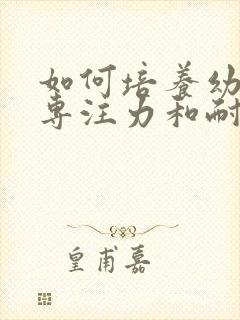 如何培养幼
专注力和耐
皇甫嘉